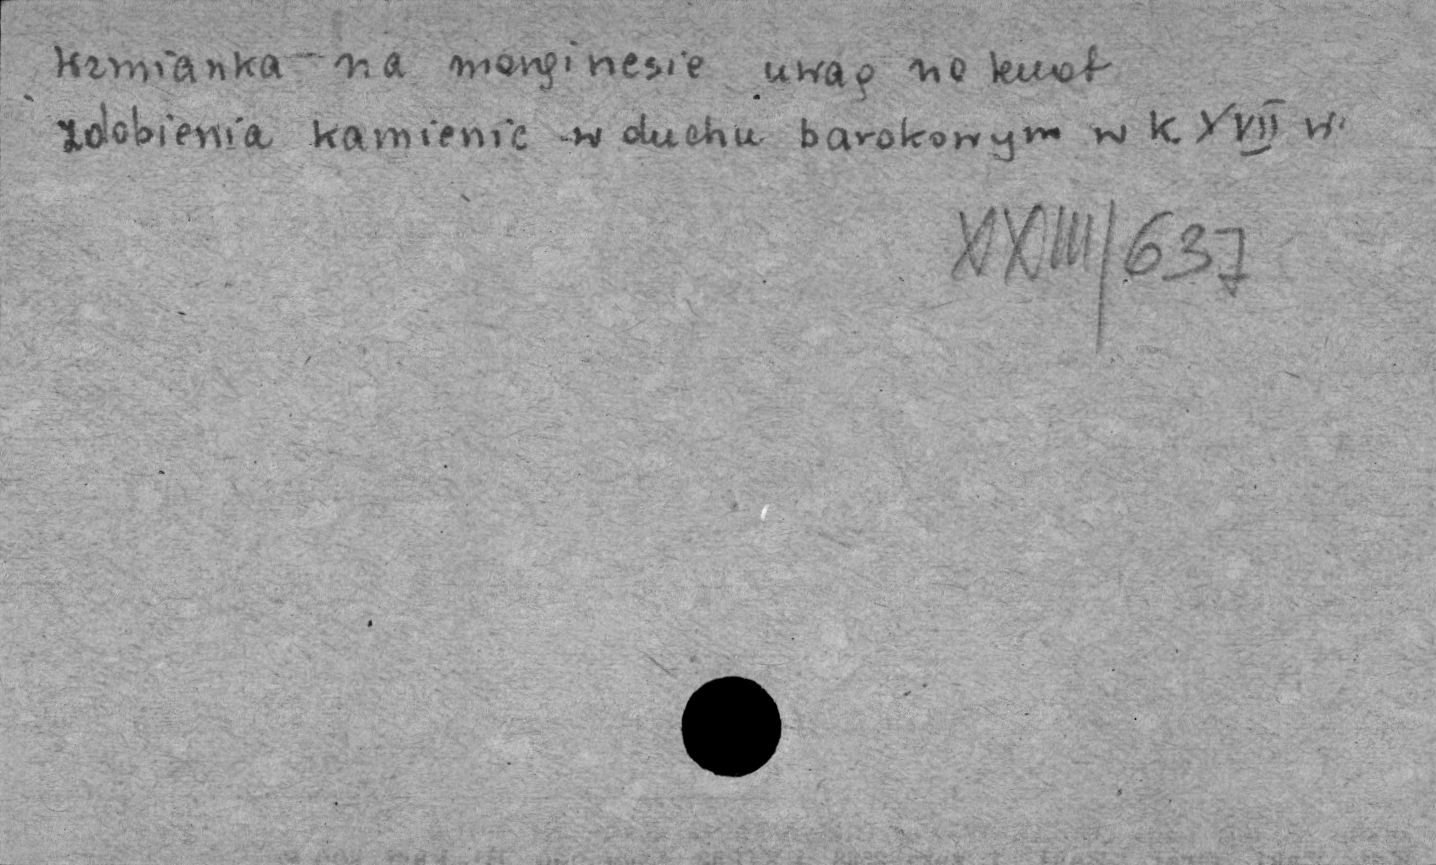 wzmianka na marginesie uwag na temat
zdobienia kamienic w duchu barokowym w k. XVII w.
XXIII/637